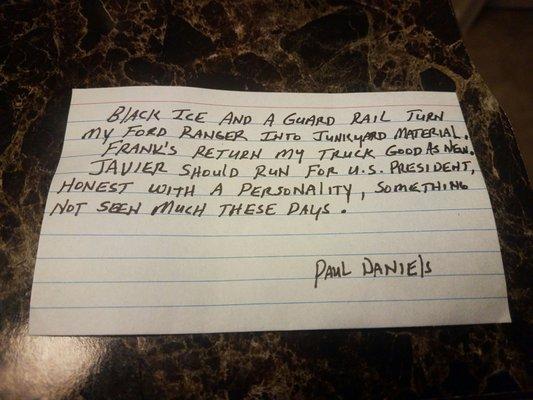 BLACK ICE AND A GUARD RAIL TURN
MY FORD RANGER INTO JUNKYARD MATERIAL.
FRANK'S RETURN MY TRUCK GOOD AS NEW.
JAVIER SHOULD RUN FOR U.S. PRESIDENT,
HONEST WITH A PERSONALITY, SOMETHING
NOT SEEN MUCH THESE DAYS.
PAUL DANIElS